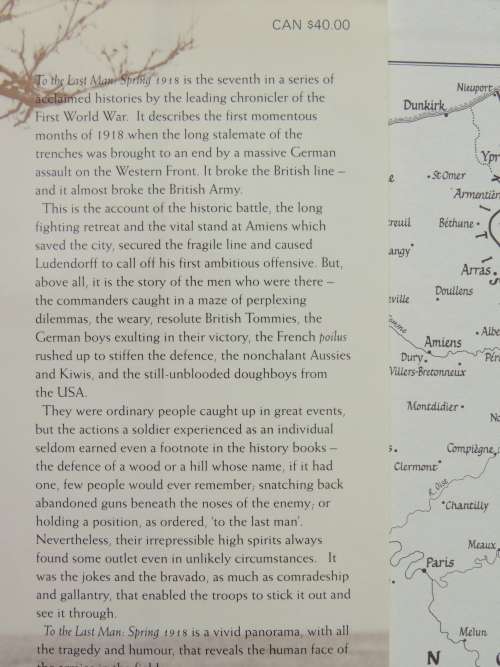 CAN $40.00
To the Last Man: Spring 1918 is the seventh in a series of
acclaimed histories by the leading chronicler of the
First World War. It describes the first momentous
months of 1918 when the long stalemate of the
trenches was brought to an end by a massive German
assault on the Western Front. It broke the British line –
and it almost broke the British Army.
This is the account of the historic battle, the long
fighting retreat and the vital stand at Amiens which
saved the city, secured the fragile line and caused
Ludendorff to call off his first ambitious offensive. But,
above all, it is the story of the men who were there –
the commanders caught in a maze of perplexing
dilemmas, the weary, resolute British Tommies, the
German boys exulting in their victory, the French poilus
rushed up to stiffen the defence, the nonchalant Aussies
and Kiwis, and the still-unblooded doughboys from
the USA.
They were ordinary people caught up in great events,
but the actions a soldier experienced as an individual
seldom earned even a footnote in the history books –
the defence of a wood or a hill whose name, if it had
one, few people would ever remember; snatching back
abandoned guns beneath the noses of the enemy; or
holding a position, as ordered, 'to the last man'.
Nevertheless, their irrepressible high spirits always
found some outlet even in unlikely circumstances. It
was the jokes and the bravado, as much as comradeship
and gallantry, that enabled the troops to stick it out and
see it through.
To the Last Man: Spring 1918 is a vivid panorama, with all
the tragedy and humour, that reveals the human face of
Nieuport
Dunkirk
Ypr
St Omer
Armentièr
reuil
Béthune
angy
Arras
Doullens
ville
Albe
Amiens
Dury
Pér
Villers-Bretonneux
Montdidier
No
Compiègne
Clermont
R. Oise
Chantilly
Meaux
Paris
Melun
N